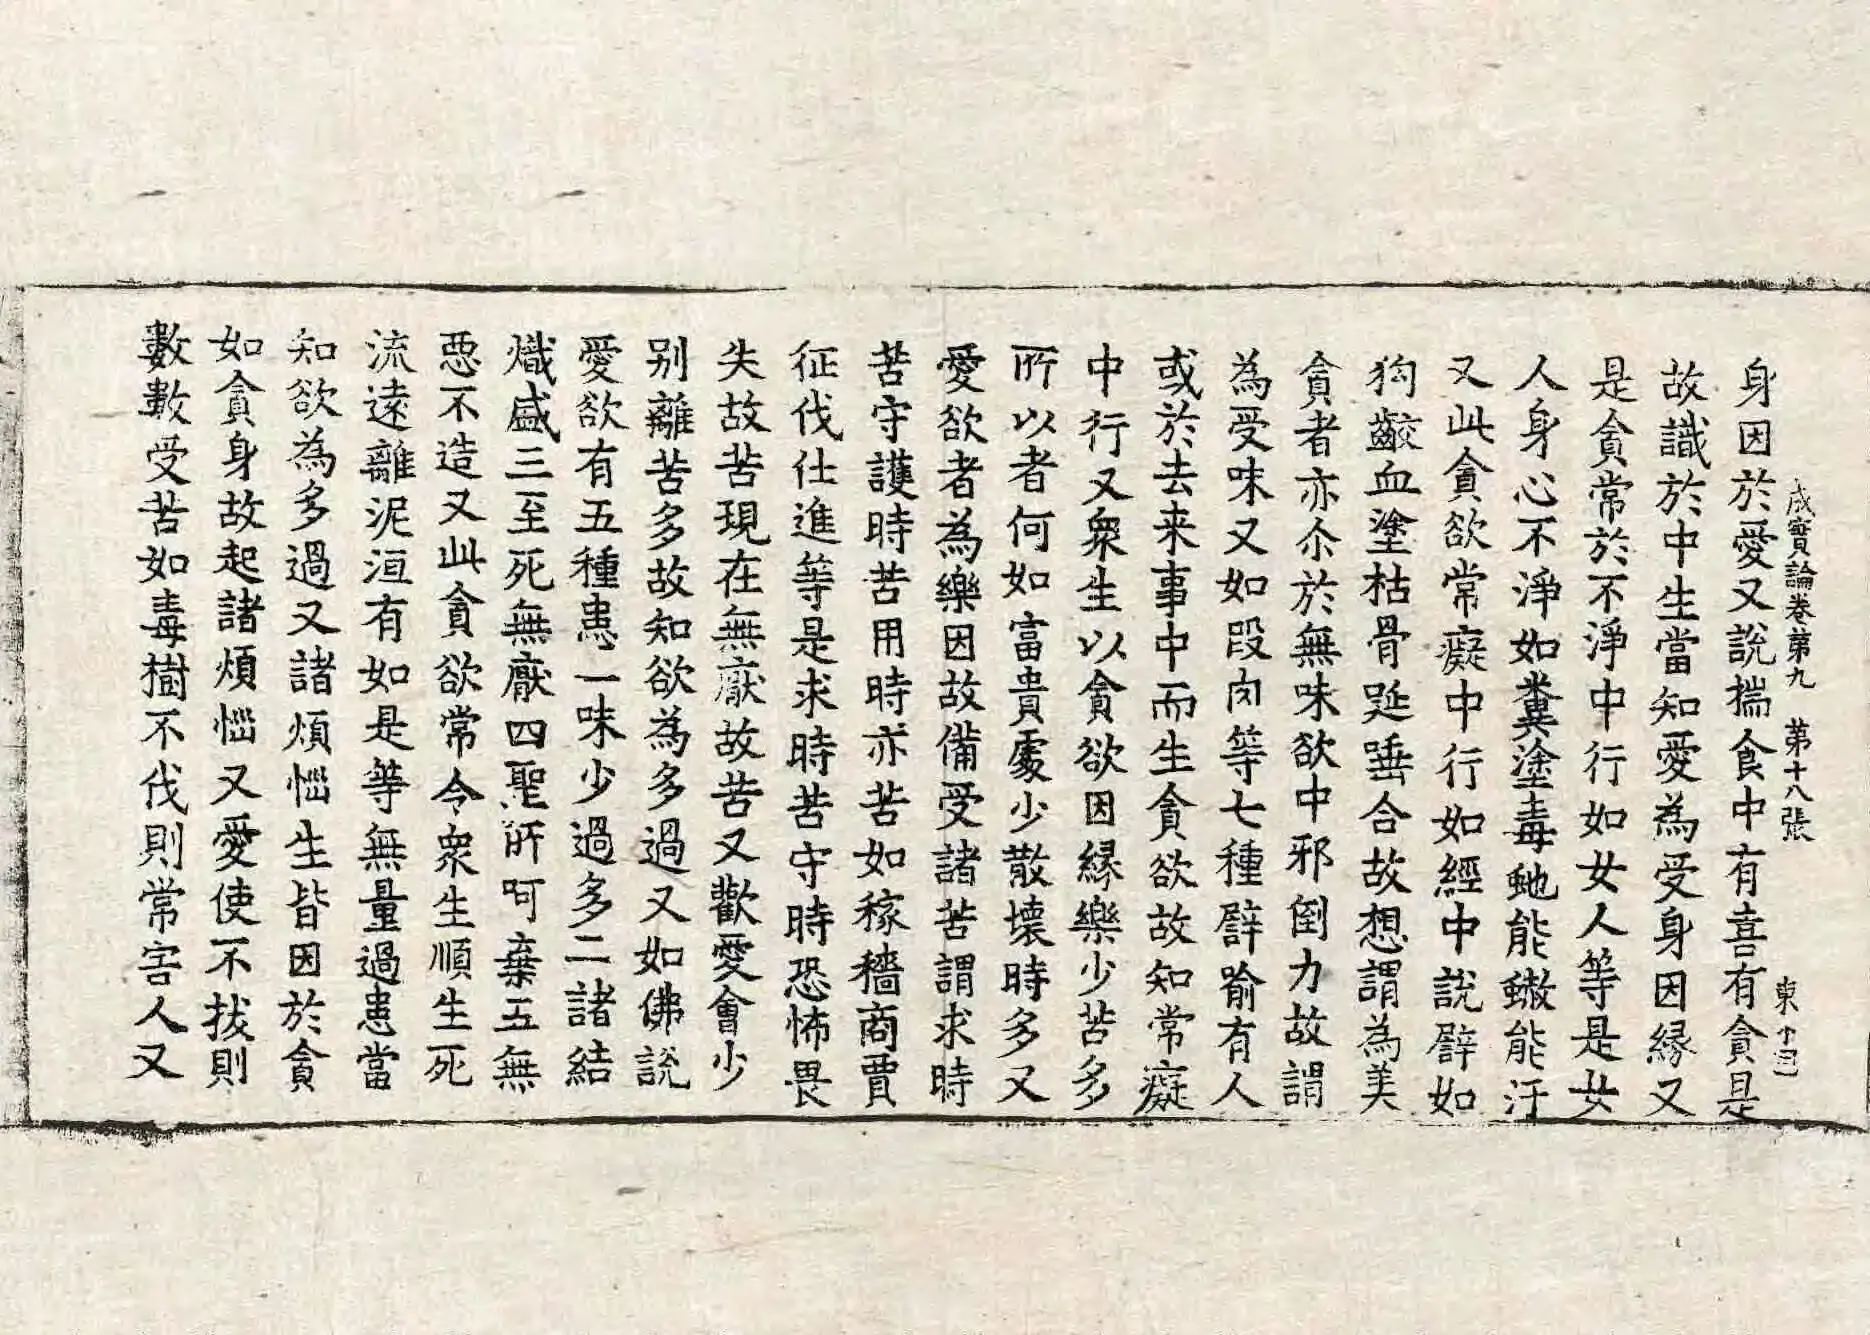 成實論卷第九　第十八張　東十四
身因於愛又說揣食中有喜有貪是
故識於中生當知愛為受身因緣又
是貪常於不淨中行如女人等是女
人身心不淨如糞塗毒虵能螫能汙
又此貪欲常癡中行如經中說譬如
狗齩血塗枯骨涎唾合故想謂為美
貪者亦尒於無味欲中邪倒力故謂
為受味又如段肉等七種譬喻有人
或於去来事中而生貪欲故知常癡
中行又衆生以貪欲因緣樂少苦多
所以者何如富貴處少散壞時多又
愛欲者為樂因故備受諸苦謂求時
苦守護時苦用時亦苦如稼穡商賈
征伐仕進等是求時苦守時恐怖畏
失故苦現在無猒故苦又歡愛會少
別離苦多故知欲為多過又如佛說
愛欲有五種患一味少過多二諸結
熾盛三至死無猒四聖所呵棄五無
惡不造又此貪欲常令衆生順生死
流遠離泥洹有如是等無量過患當
知欲為多過又諸煩惱生皆因於貪
如貪身故起諸煩惱又愛使不拔則
數數受苦如毒樹不伐則常害人又